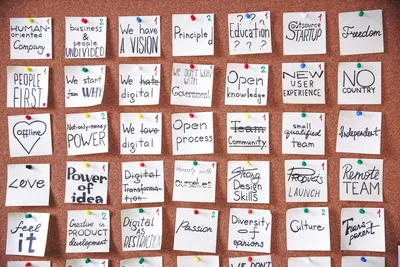 HUMAN-
oriented
Company
1
business
&
people
UNDIVIDED
2
We have
A VISION
1
Principle
2
Education
? ? ?
2
Outsource
STARTUP
1
Freedom
1
PEOPLE
FIRST
1
We start
from WHY
2
We hate
digital
1
We DON'T WORK
with
Government
1
Open
knowledge
2
NEW
USER
EXPERIENCE
1
NO
COUNTRY
offline
Not-only-money
POWER
2
We love
digital
1
Open
process
2
Team
Community
1
small
qualified
team
1
Independent
Love
Power of
idea
1
Digital
Transforma-
tion
1
Honesty with
ourselves
1
Strong
Design
Skills
LAUNCH
Remote
TEAM
Feel
it
Creative is
PRODUCT
development
2
Digital
AS
RESTRICTION
2
Passion
2
Diversity
of
opinions
2
Culture
1
Trans-
parent
1
WE DON'T